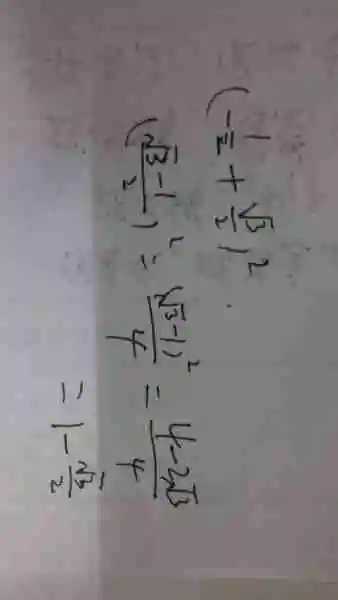 (-1/2 + √3/2)²
(√3-1/2)² = (√3-1)²/4 = 4-2√3/4
= 1 - √3/2